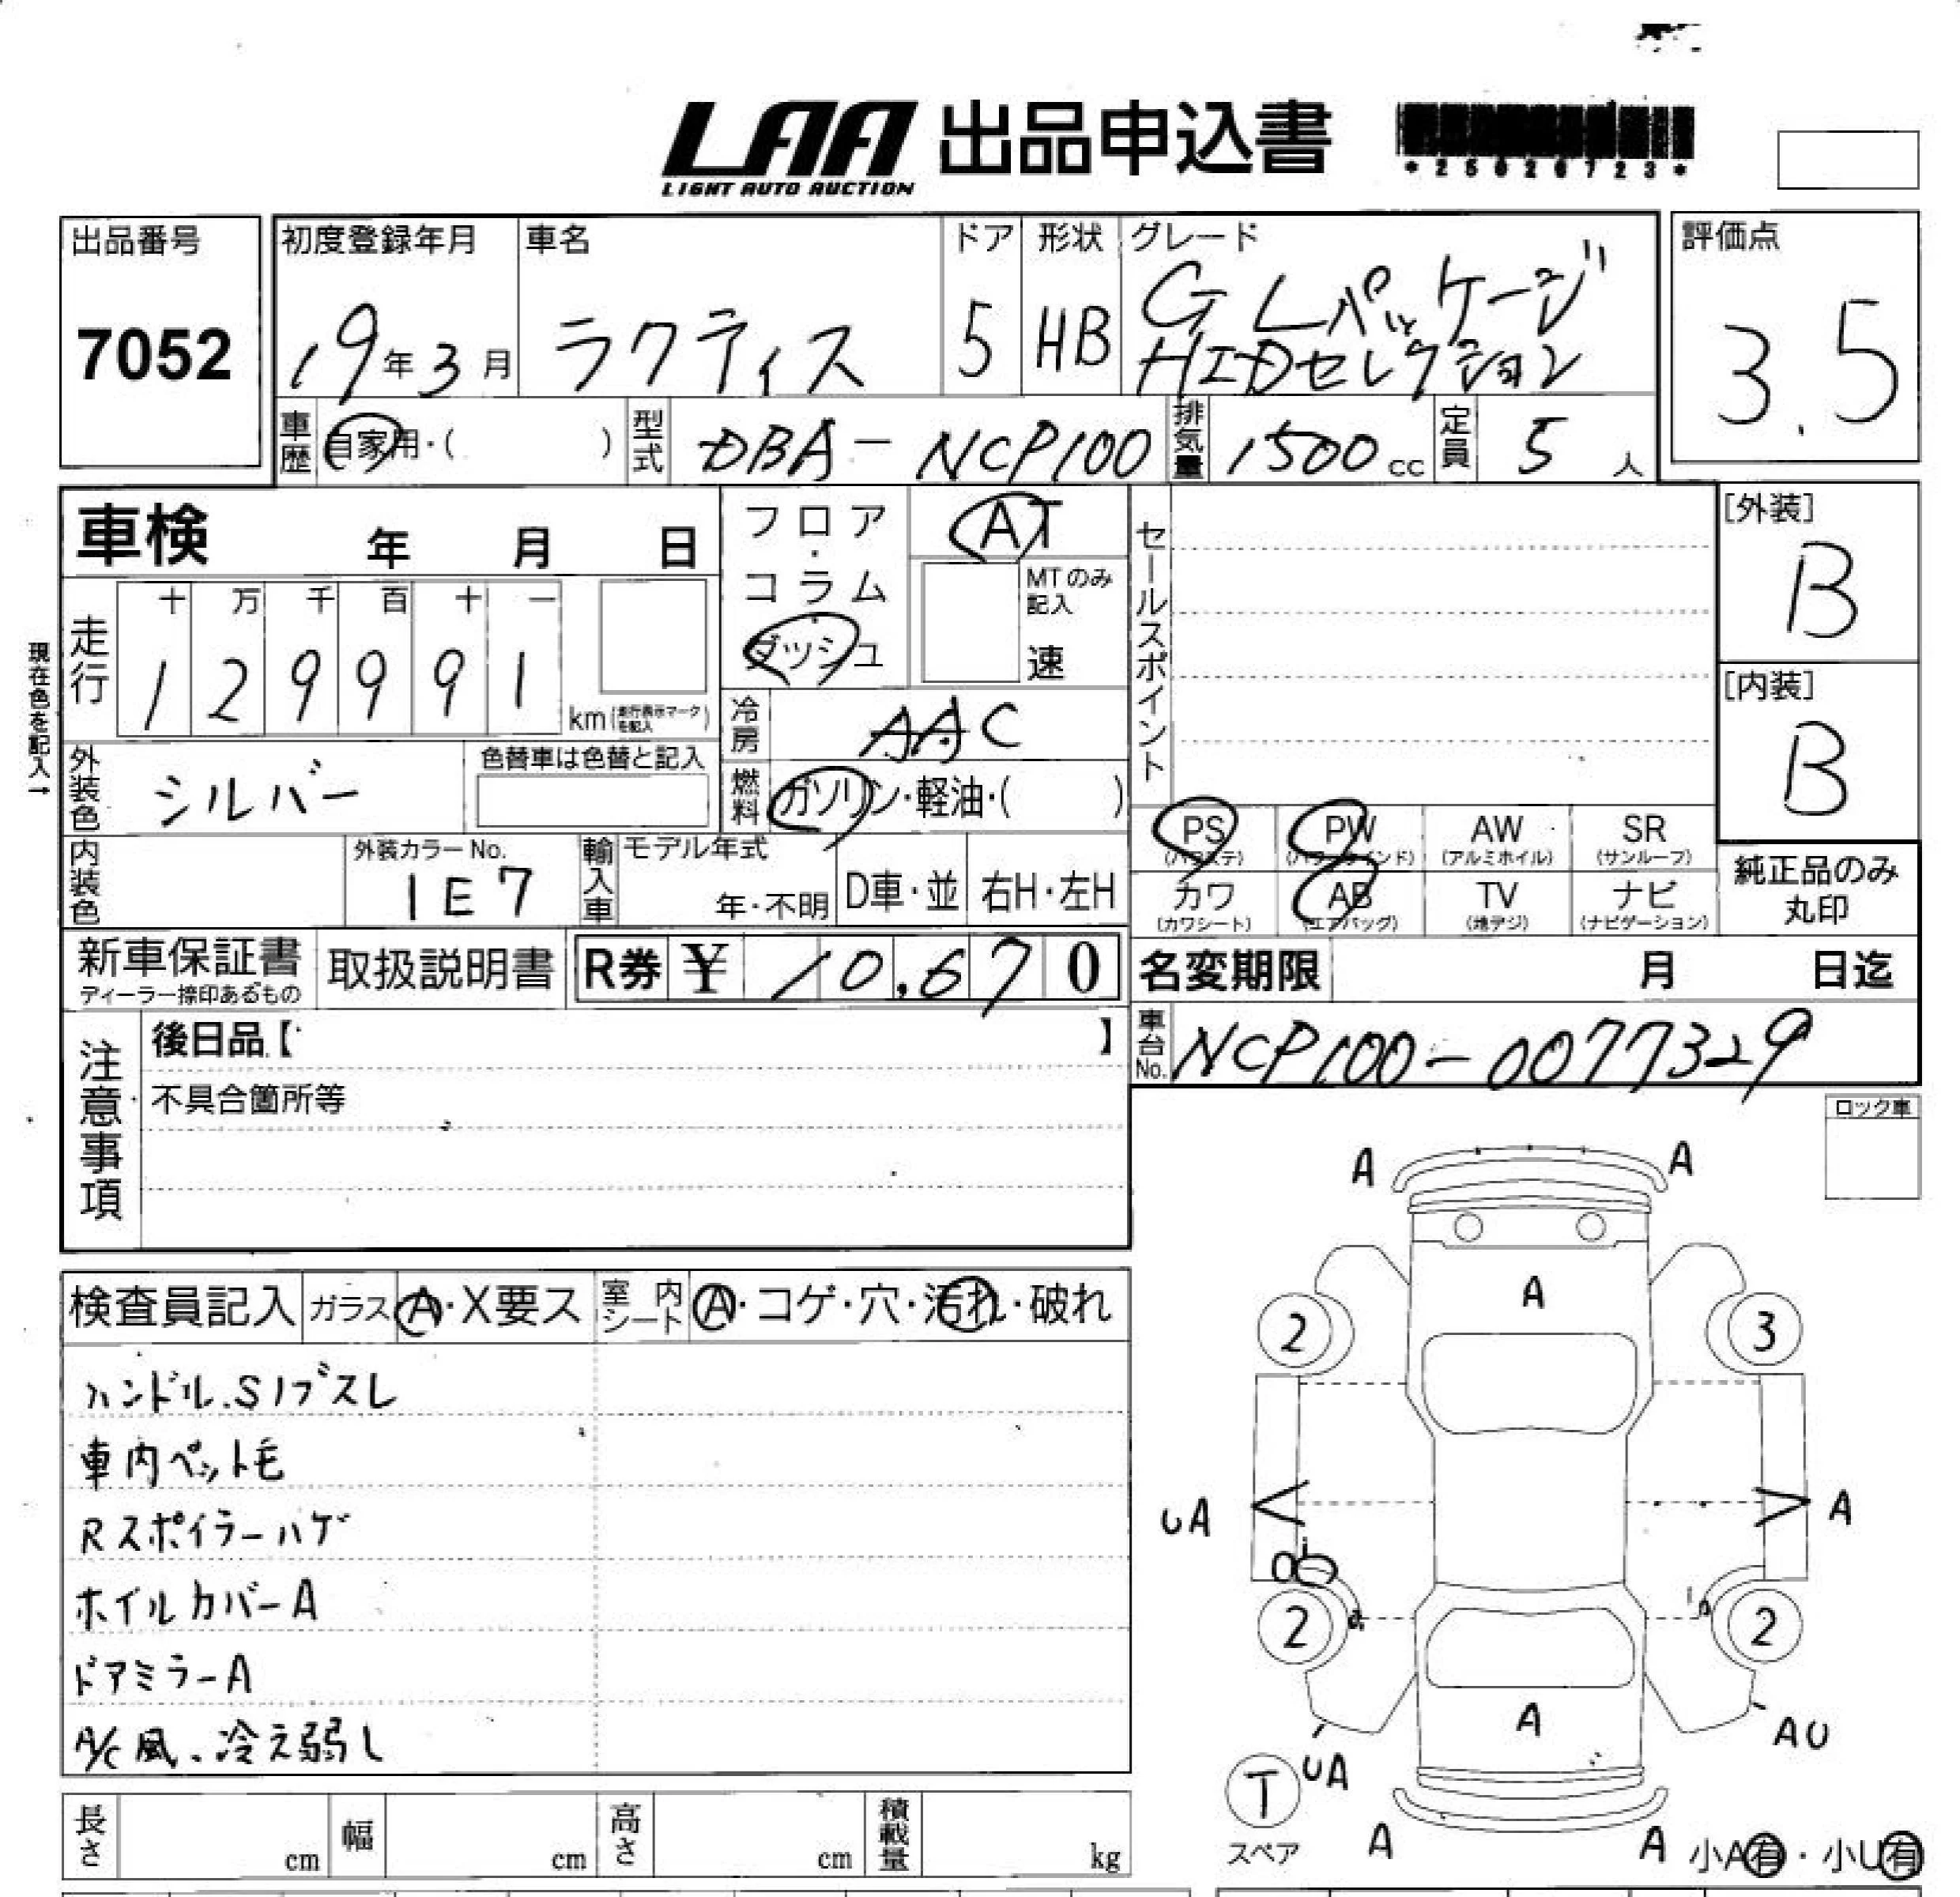 LAA 出品申込書
LIGHT AUTO AUCTION
*25026723*
出品番号
7052
初度登録年月
19年3月
車名
ラクティス
ドア
5
形状
HB
グレード
G Lパッケージ
HIDセレクション
評価点
3.5
車歴 自家用・( )
型式 DBA-NCP100
排気量 1500 cc
定員 5 人
車検 年 月 日
フロア・コラム・ダッシュ
AT
MTのみ記入
速
セールスポイント
[外装]
B
[内装]
B
現在色を記入→
走行
十 万 千 百 十 一
1 2 9 9 9 1 km (走行表示マークを記入)
冷房 AAC
燃料 ガソリン・軽油・( )
外装色 シルバー
色替車は色替と記入
内装色
外装カラーNo.
1E7
輸入車 モデル年式
年・不明
D車・並
右H・左H
PS (パワステ)
PW (パワーウインド)
AW (アルミホイル)
SR (サンルーフ)
カワ (カワシート)
AB (エアバッグ)
TV (地デジ)
ナビ (ナビゲーション)
純正品のみ
丸印
新車保証書
ディーラー捺印あるもの
取扱説明書
R券 ¥ 10,670
名変期限 月 日迄
車台No. NCP100-0077329
注意事項
後日品【 】
不具合箇所等
ロック車
検査員記入
ガラス A・X要ス
室内シート A・コゲ・穴・汚れ・破れ
ハンドル.Sノブスレ
車内ペット毛
Rスポイラーハゲ
ホイルカバーA
ドアミラーA
A/C風、冷え弱し
A A
A
2 3
UA A
2 2
A
UA AU
T
スペア
A A
小A有・小U有
長さ cm
幅 cm
高さ cm
積載量 kg